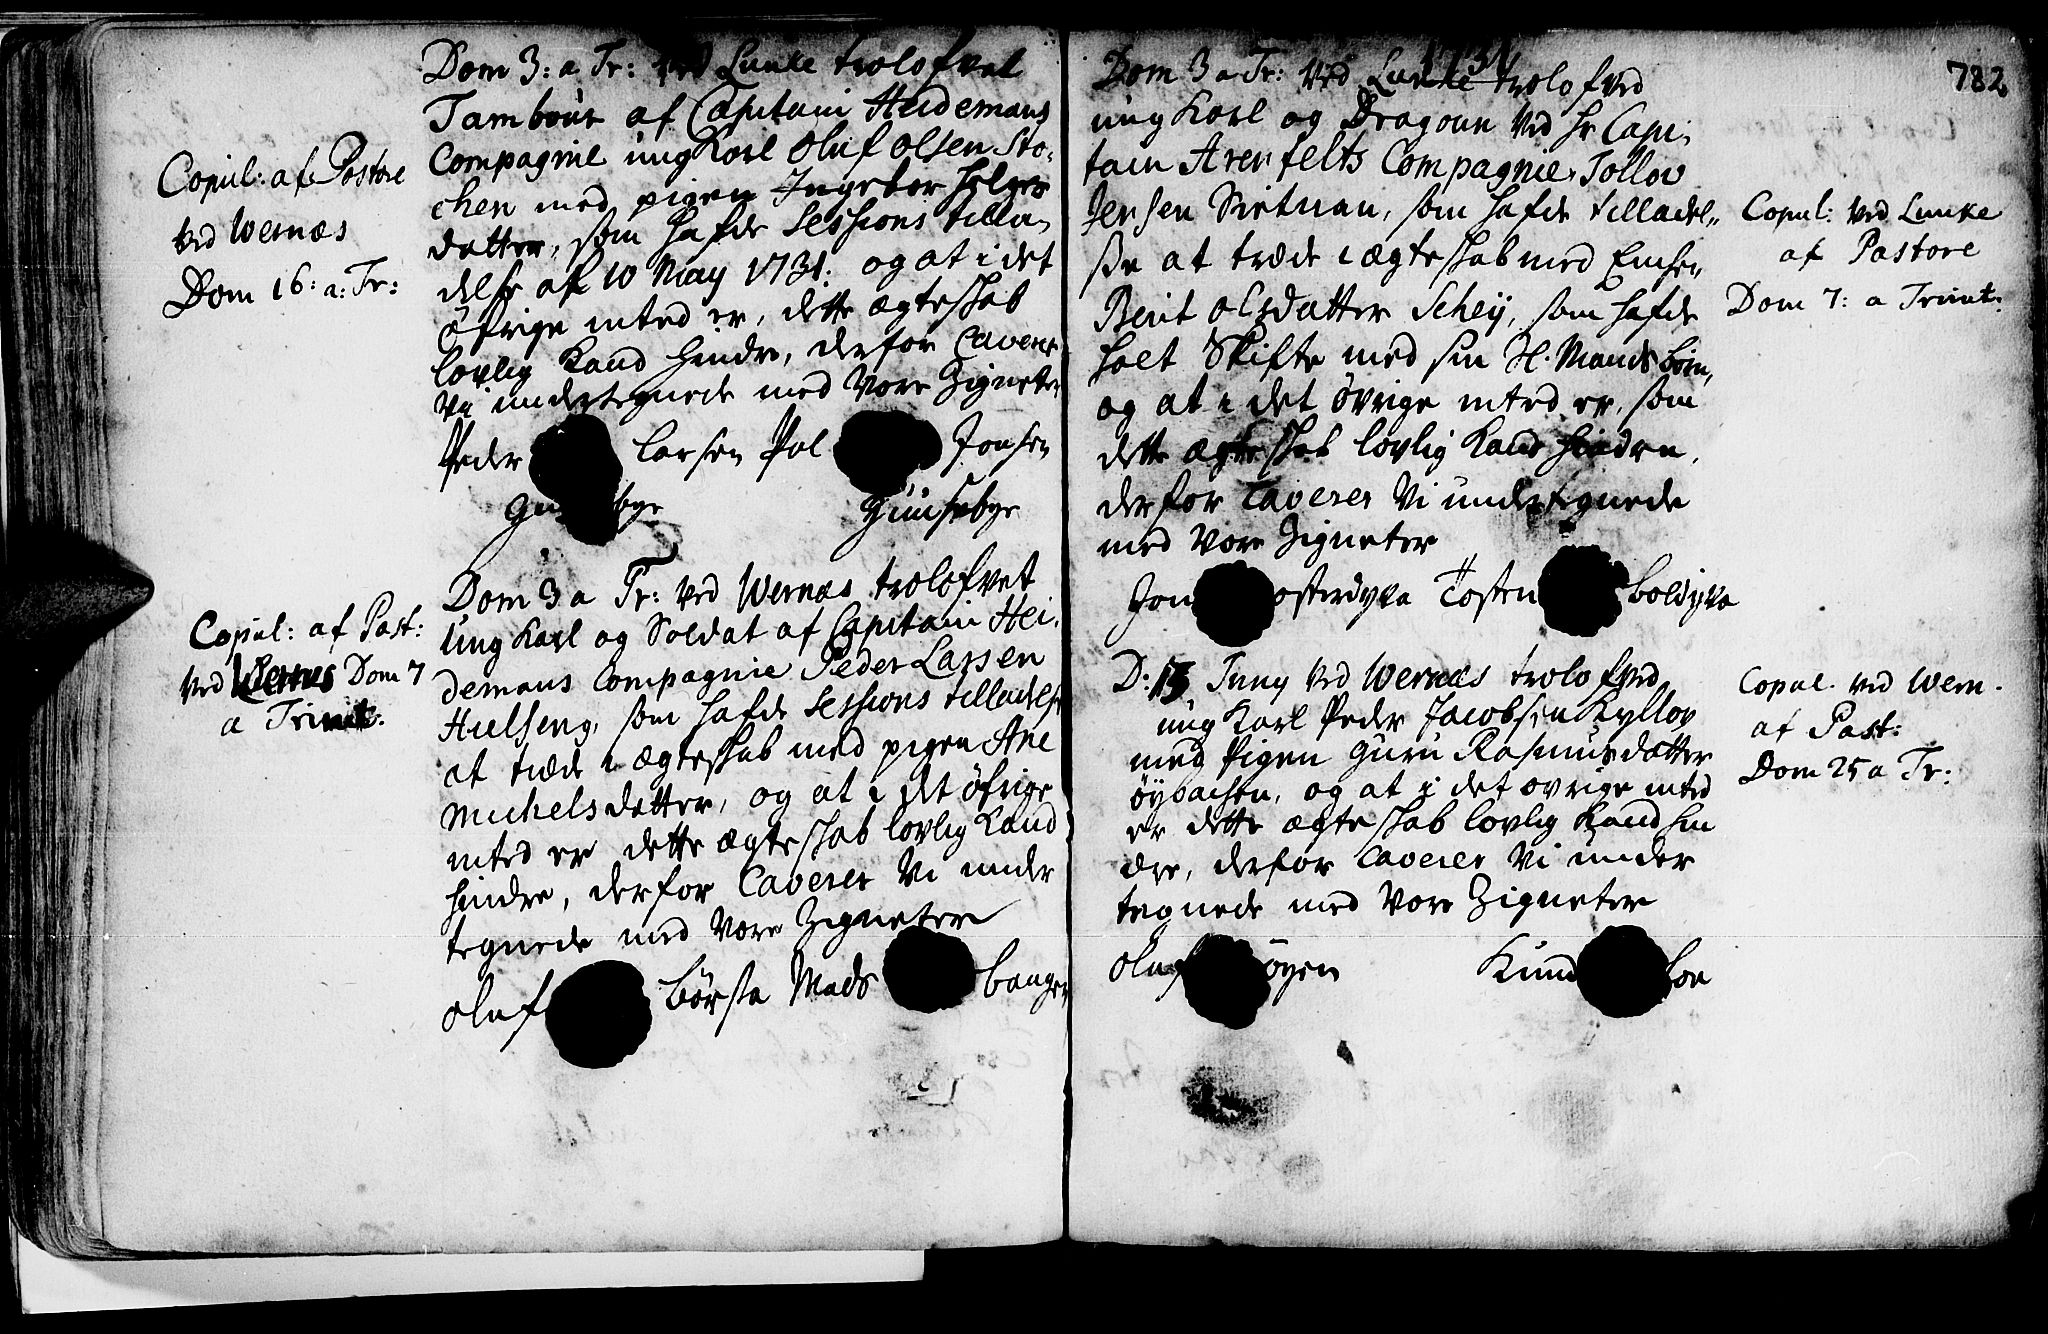 Dom 3: a Tr: ved Lunke trolofvet
Tambour af Capitain Heidemans
Compagnie ung Karl Oluf Olsen Sto-
chen med pigen Ingebor Helges
datter, som hafde Sessions tilla-
delse af 10 May 1731. og at i det
öfrige inted er, dette ægteskab
lovlig Kand hindre, derfor Cavere
Vi undertegnede med Vore Zigneter
Peder Larsen Pol Jonsen
Gu bye Gunsebye
Copul: af Pastore
ved Wernæs
Dom 16: a: Tr:
Dom 3 a Tr: ved Wernæs trolofvet
Ung Karl og Soldat af Capitain Hei-
demans Compagnie Peder Larsen
Hielseng, som hafde Sessions tilladelse
at træde i ægteskab med pigen Ane
Michelsdatter, og at i det öfrige
inted er dette ægteskab lovlig Kand
hindre, derfor Caverer Vi under
tegnede med Vore Zigneter
Oluf Börsta Mads banger
Copul: af Past:
ved Wernes Dom 7
a Trinit:
1731
782
Dom 3 a Tr: ved Lunke trolofved
ung Karl og Dragoun ved Hr Capi-
tain Arenfelts Compagnie, Tollov
Jensen Sietnan, som hafde tilladel-
se at træde i ægteskab med Encken
Berit Olsdatter Schey, som hafde
holt Skifte med sin Sl. Mands born,
og at i det övrige inted er, som
dette ægteskab lovlig Kand hindre,
derfor Caverer Vi undertegnede
med Vore Zigneter
Jon osterdyra Tosten boldyra
Copul: ved Lunke
af Pastore
Dom 7: a Trinit:
D: 13 Juny ved Wernæs trolofved
ung Karl Peder Jacobsen Kyllov
med Pigen Guru Rasmusdatter
öybachen, og at i det ovrige inted
er dette ægteskab lovlig Kand hin
dre, derfor Caverer Vi under
tegnede med Vore Zigneter
Oluf öyen Knud boe
Copul. ved Wern.
af Past:
Dom 25 a Tr: